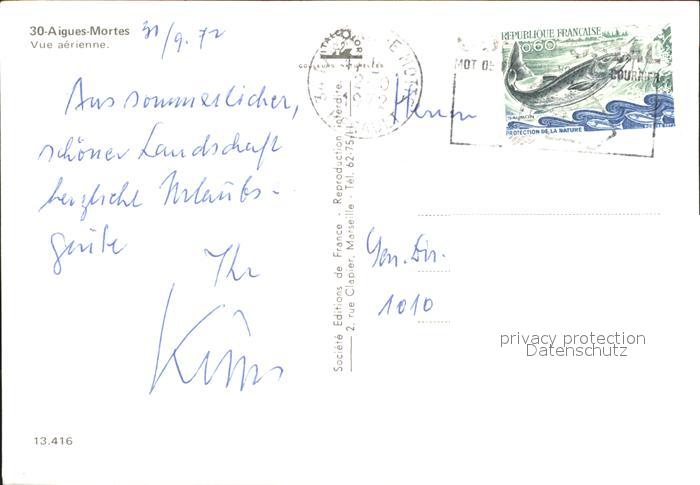 30-Aigues-Mortes
Vue aérienne.
30/9.72
Aus sommerlicher,
schöner Landschaft
herzliche Urlaubs-
grüße
Ihr
13.416
Société Editions de France - Reproduction interdite
2, rue Clapier, Marseille - Tél. 62-75/11
COULEURS NATURELLES
REPUBLIQUE FRANÇAISE
0,60
SAUMON
PROTECTION DE LA NATURE
MOT DE
COURRIER
Herrn
Gen. Dir.
1010
privacy protection
Datenschutz